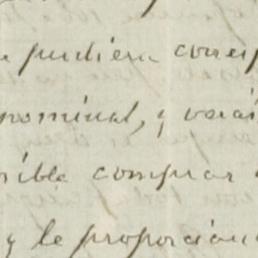 pudiera corresp
nominal, y
sible comprar
y le proporcion